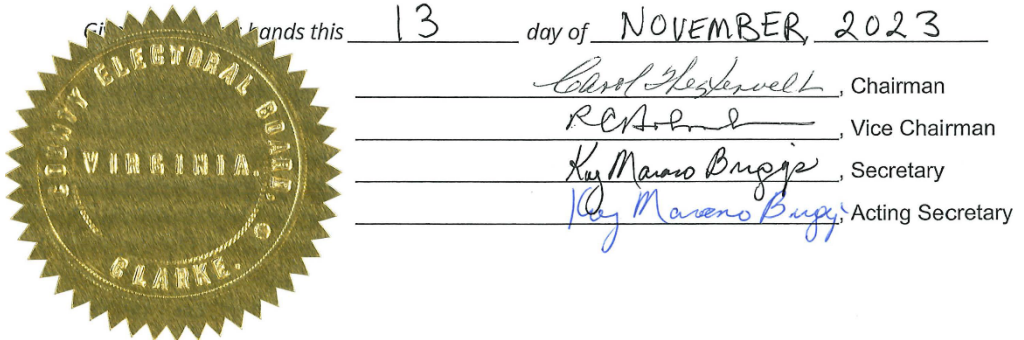 Gi hands this 13 day of NOVEMBER, 2023
Carol , Chairman
, Vice Chairman
Kay Marano Briggs, Secretary
Kay Marano Briggs, Acting Secretary
COUNTY ELECTORAL BOARD,
VIRGINIA.
CLARKE.